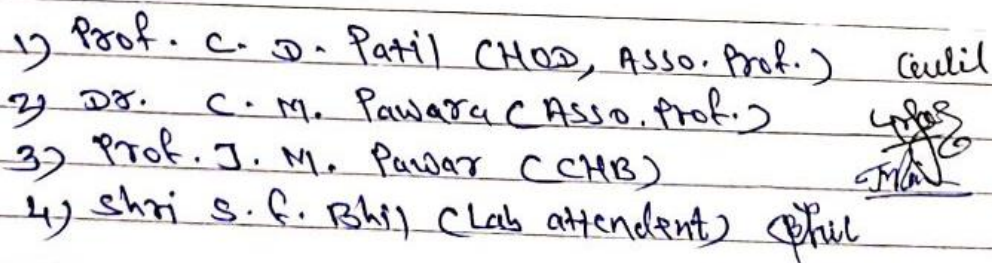 1) Prof. C. D. Patil (HOD, Asso. Prof.)
2) Dr. C. M. Pawara (Asso. Prof.)
3) Prof. J. M. Pawar (CHB)
4) Shri S. F. Bhil (Lab attendent)